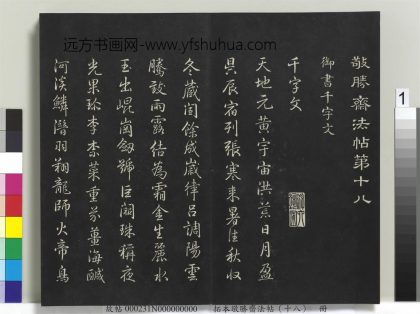 远方书画网-www.yfshuhua.com
1
敬勝齋法帖第十八
御書千字文
千字文
天地元黃宇宙洪荒日月盈
昃辰宿列張寒來暑往秋收
冬藏閏餘成歲律呂調陽雲
騰致雨露結為霜金生麗水
玉出崐岡劒號巨闕珠稱夜
光果珍李柰菜重芥薑海鹹
河淡鱗潛羽翔龍師火帝鳥
故帖 000231N000000000 拓本敬勝齋法帖(十八) 冊